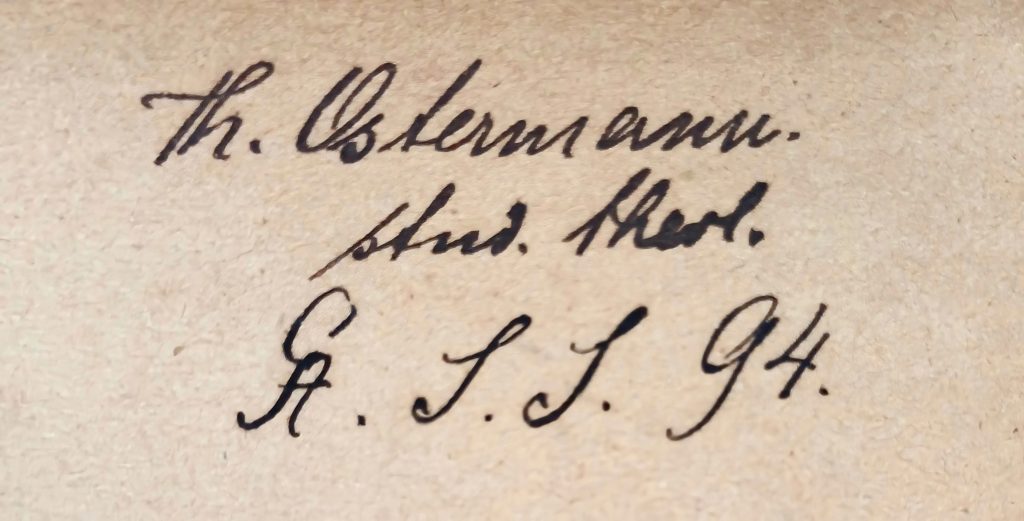 Th. Ostermann.
stud. theol.
S. S. 94.